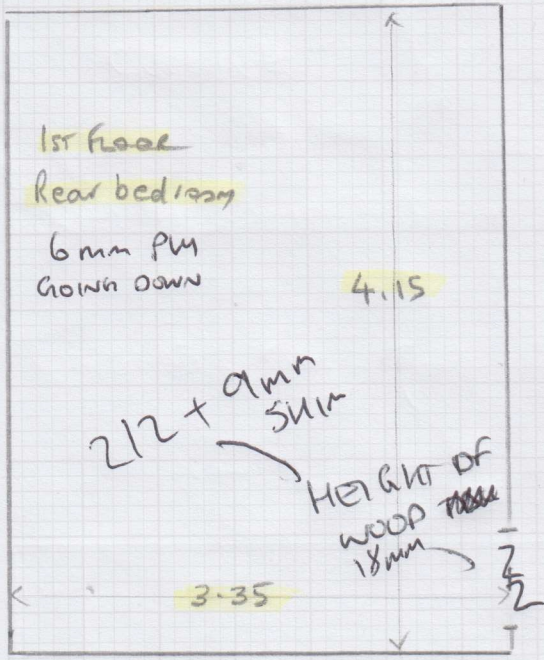 1ST FLOOR
Rear bedroom
6mm PLY
GOING DOWN
4.15
212 + 9mm
SHIM
HEIGHT OF
WOOD
18mm
Z
2
3.35